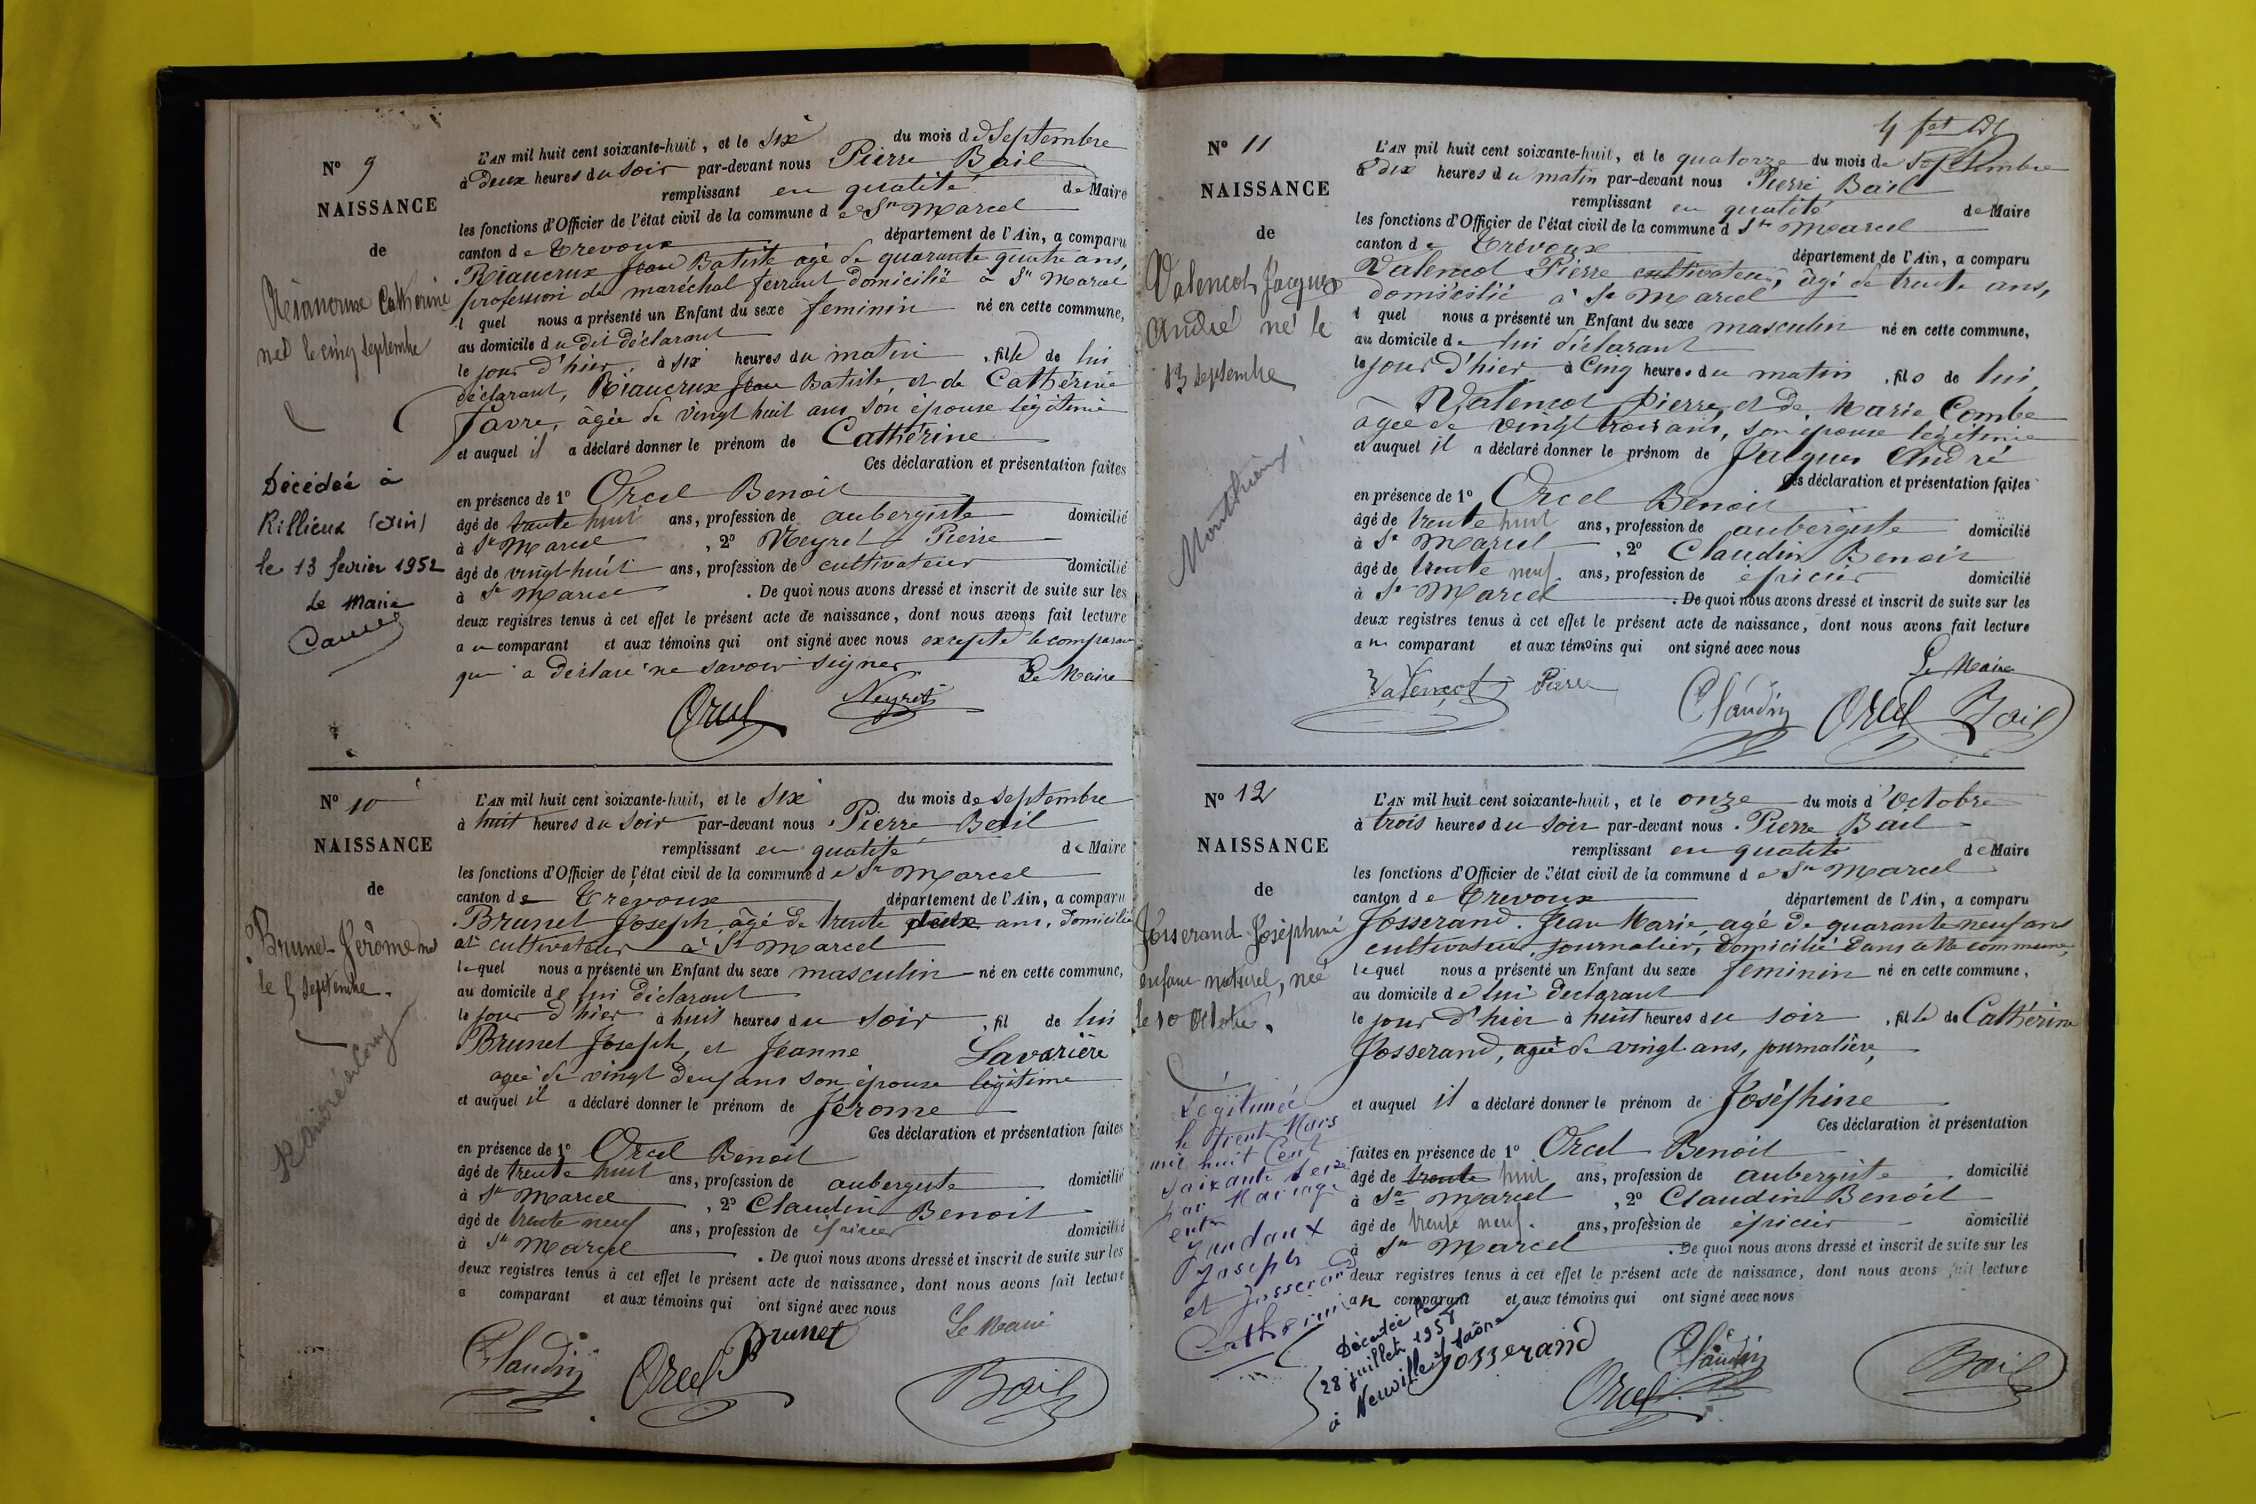 N° 9
NAISSANCE
de
Catherine
le cinq septembre
Décédée à
Rillieux (Ain)
le 13 fevrier 1952
Le Maire
L'AN mil huit cent soixante-huit, et le six du mois de Septembre
à deux heures du soir par-devant nous Pierre Bail
remplissant en qualité de Maire
les fonctions d'Officier de l'état civil de la commune de St Marcel
canton de Trevoux département de l'Ain, a comparu
Riaucrux Jean Batiste agé de quarante quatre ans,
profession de maréchal ferrant domicilié à St Marcel
l quel nous a présenté un Enfant du sexe feminin né en cette commune,
au domicile du dit déclarant
le jour d'hier, à six heures du matin, fille de lui
déclarant, Riaucrux Jean Batiste, et de Cathérine
Favre, âgée de vingt huit ans son épouse légitime
et auquel il a déclaré donner le prénom de Cathérine
Ces déclaration et présentation faites
en présence de 1° Orcel Benoit
âgé de trente huit ans, profession de aubergiste domicilié
à St Marcel, 2° Neyret Pierre
âgé de vingt huit ans, profession de cultivateur domicilié
à St Marcel. De quoi nous avons dressé et inscrit de suite sur les
deux registres tenus à cet effet le présent acte de naissance, dont nous avons fait lecture
au comparant et aux témoins qui ont signé avec nous excepté le comparant
qui a déclaré ne savoir signer Le Maire
Orcel Neyret
N° 10
NAISSANCE
de
Brunet Jerôme né
le 5 septembre.
L'AN mil huit cent soixante-huit, et le six du mois de septembre
à huit heures du soir par-devant nous Pierre Bail
remplissant en qualité de Maire
les fonctions d'Officier de l'état civil de la commune de St Marcel
canton de Trevoux département de l'Ain, a comparu
Brunet Joseph, âgé de trente deux ans, domicilié
et cultivateur à St Marcel
lequel nous a présenté un Enfant du sexe masculin né en cette commune,
au domicile de lui déclarant
le jour d'hier à huit heures du soir, fil de lui
Brunet Joseph, et Jeanne Lavarière
agée de vingt deux ans son épouse légitime
et auquel il a déclaré donner le prénom de Jérome
Ces déclaration et présentation faites
en présence de 1° Orcel Benoit
âgé de trente huit ans, profession de aubergiste domicilié
à St Marcel, 2° Claudin Benoit
âgé de trente neuf ans, profession de épicier domicilié
à St Marcel. De quoi nous avons dressé et inscrit de suite sur les
deux registres tenus à cet effet le présent acte de naissance, dont nous avons fait lecture
a comparant et aux témoins qui ont signé avec nous
Le Maire
Claudin Orcel Brunet Bail
N° 11
NAISSANCE
de
Valencot Jacques
André né le
13 septembre
Monthieux
L'AN mil huit cent soixante-huit, et le quatorze du mois de Septembre
à dix heures du matin par-devant nous Pierre Bail
remplissant en qualité de Maire
les fonctions d'Officier de l'état civil de la commune d St Marcel
canton de Trévoux département de l'Ain, a comparu
Valencot Pierre cultivateur, âgé de trente ans,
domicilié à St Marcel
l quel nous a présenté un Enfant du sexe masculin né en cette commune,
au domicile de lui déclarant
le jour d'hier à cinq heures du matin, fils de lui,
Valencot Pierre, et de Marie Combe
âgée de vingt trois ans, son épouse légitime
et auquel il a déclaré donner le prénom de Jacques André
Ces déclaration et présentation faites
en présence de 1° Orcel Benoit
âgé de trente huit ans, profession de aubergiste domicilié
à St Marcel, 2° Claudin Benoit
âgé de trente neuf. ans, profession de épicier domicilié
à St Marcel. De quoi nous avons dressé et inscrit de suite sur les
deux registres tenus à cet effet le présent acte de naissance, dont nous avons fait lecture
au comparant et aux témoins qui ont signé avec nous
Le Maire
Valencot Pierre Claudin Orcel Bail
N° 12
NAISSANCE
de
Josserand Joséphine
enfant naturel, née
le 10 Octobre.
Légitimée
le trente Mars
mil huit Cent
soixante
par Mariage
entre
Jandaux
Joseph
et Josserand
Catherine
L'AN mil huit cent soixante-huit, et le onze du mois d'Octobre
à trois heures du soir par-devant nous Pierre Bail
remplissant en qualité de Maire
les fonctions d'Officier de l'état civil de la commune de St Marcel
canton de Trevoux département de l'Ain, a comparu
Josserand Jean Marie, agé de quarante neuf ans
cultivateur journalier, domicilié dans cette commune,
lequel nous a présenté un Enfant du sexe feminin né en cette commune,
au domicile de lui declarant
le jour d'hier à huit heures du soir, fille de Cathérine
Josserand, agée de vingt ans, journalière,
et auquel il a déclaré donner le prénom de Joséphine
Ces déclaration et présentation
faites en présence de 1° Orcel Benoit
âgé de trente huit ans, profession de aubergiste domicilié
à St Marcel, 2° Claudin Benoit
âgé de trente neuf. ans, profession de épicier domicilié
à St Marcel. De quoi nous avons dressé et inscrit de suite sur les
deux registres tenus à cet effet le présent acte de naissance, dont nous avons fait lecture
au comparant et aux témoins qui ont signé avec nous
Décédée le
28 juillet 1958
à Neuville s/ Saône
Josserand Claudin Orcel Bail